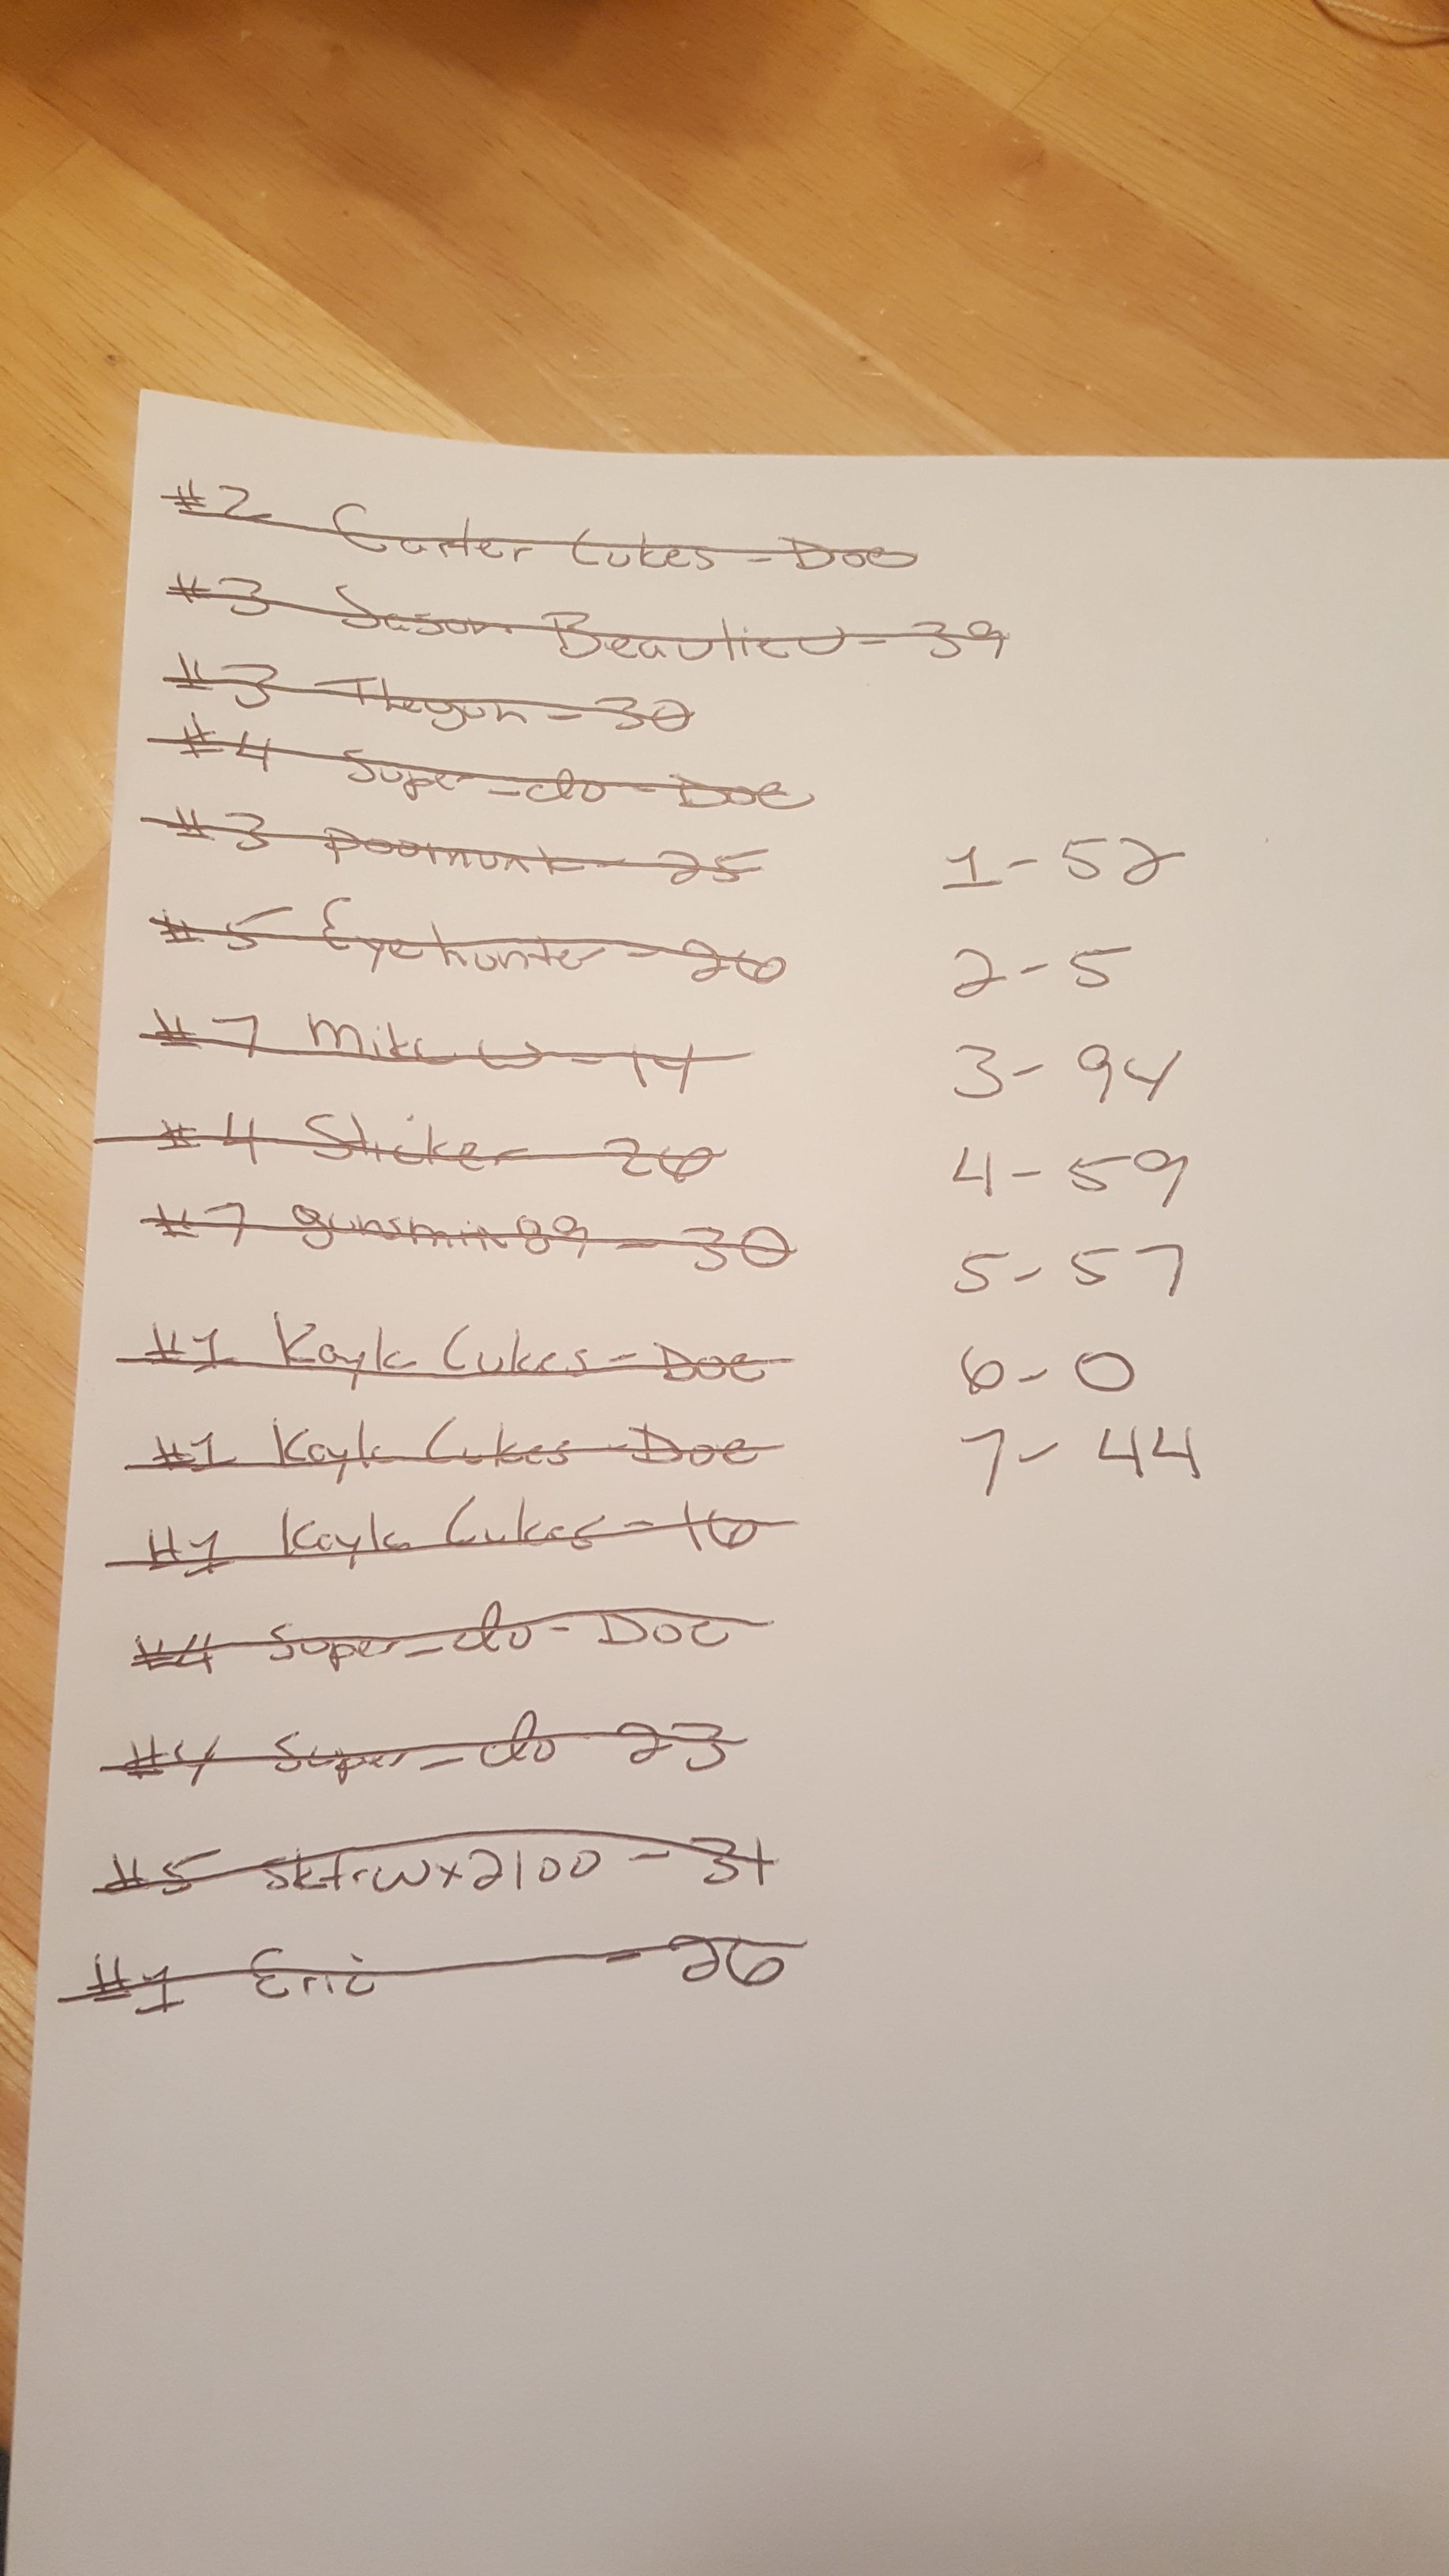 #2 Carter Cukes - Doe
#3 Jason Beaulieu - 39
#3 Thegun - 30
#4 Super-do - Doe
#3 - 25
#5 Eyehunter - 26
#7 Mike W - 14
#4 Sticker 26
#7 gunsmix89 - 30
#1 Kayla Cukes - Doe
#1 Kayla Cukes - Doe
#1 Kayla Cukes - 16
#4 Super-do - Doe
#4 Super-do 23
#5 - 31
#1 Eric - 26
1 - 52
2 - 5
3 - 94
4 - 59
5 - 57
6 - 0
7 - 44